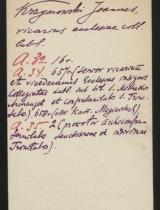 Krzynowski Joannes,
vicarius ecclesiae coll.
lubl.
A. 32. 16v.
A. 34. 65v. (senior vicariorum
et vicedecanus Ecclesiae insignis
Collegiatae lubl. sub tit. S. Michaelis
Archangeli et confraternitatis S. Trini
tatis)
A. 35 - 2 (promotor Archiconfra
ternitatis Sanctissimae et individuae
Trinitatis).